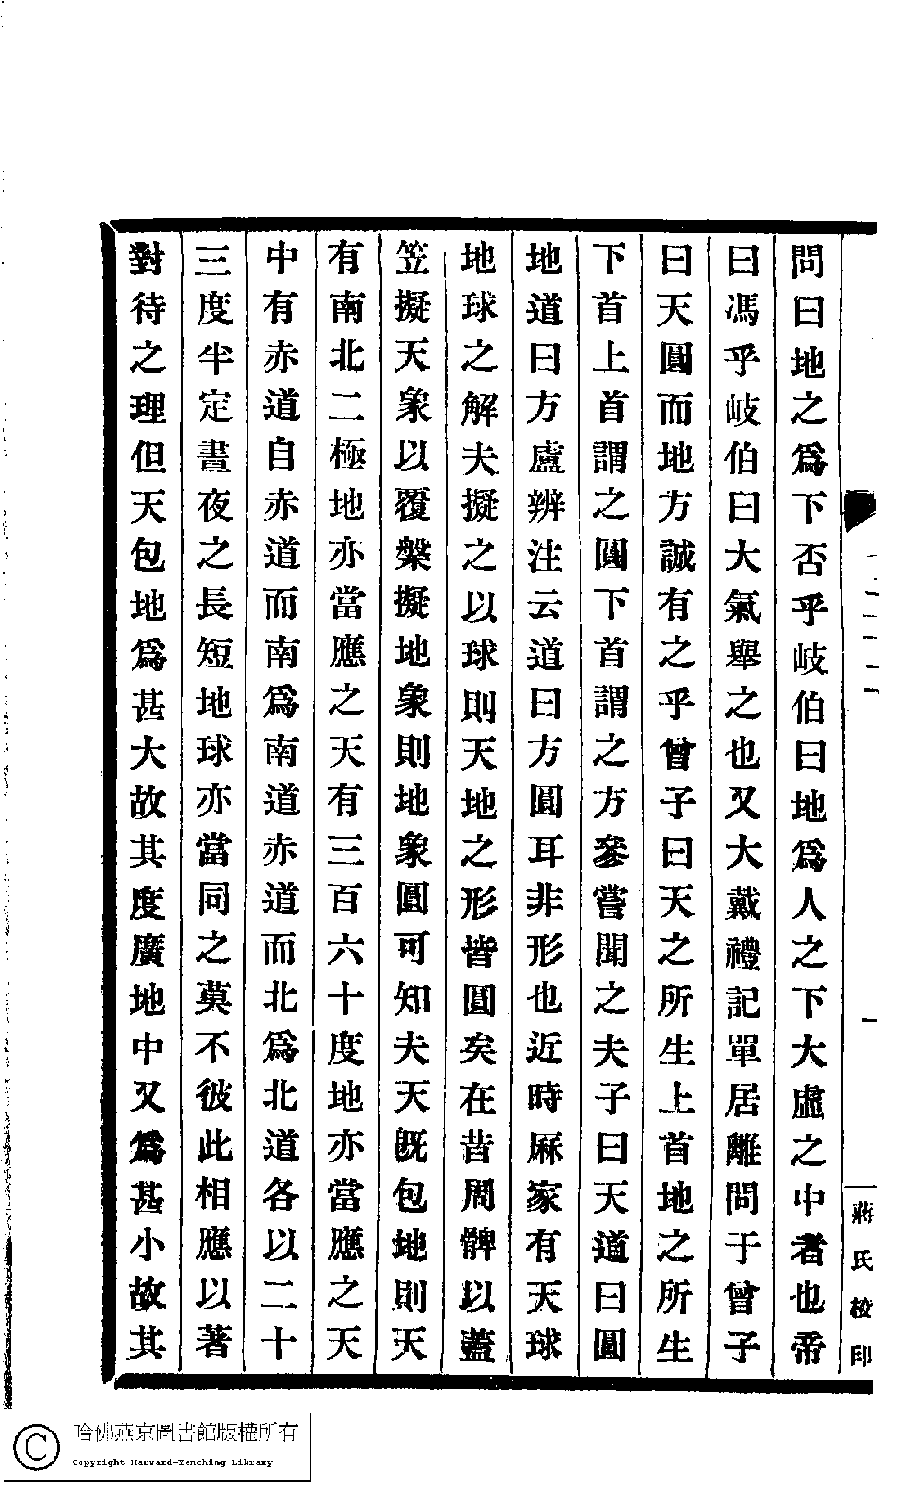 問曰地之爲下否乎岐伯曰地爲人之下大虛之中者也帝
曰馮乎岐伯曰大氣舉之也又大戴禮記單居離問于曾子
曰天圓而地方誠有之乎曾子曰天之所生上首地之所生
下首上首謂之圓下首謂之方參嘗聞之夫子曰天道曰圓
地道曰方盧辨注云道曰方圓耳非形也近時厤家有天球
地球之解夫擬之以球則天地之形皆圓矣在昔周髀以蓋
笠擬天象以覆槃擬地象則地象圓可知夫天既包地則天
有南北二極地亦當應之天有三百六十度地亦當應之天
中有赤道自赤道而南爲南道赤道而北爲北道各以二十
三度半定晝夜之長短地球亦當同之莫不彼此相應以著
對待之理但天包地爲甚大故其度廣地中又爲甚小故其
蔣氏校印
哈佛燕京圖書館版權所有
Copyright Harvard-Yenching Library